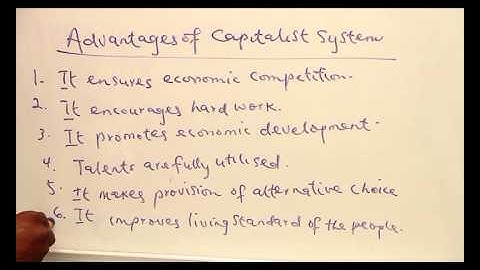 Advantages of Capitalist System
1. It ensures economic competition.
2. It encourages hard work.
3. It promotes economic development.
4. Talents are fully utilised.
5. It makes provision of alternative choice
6. It improves living standard of the people.